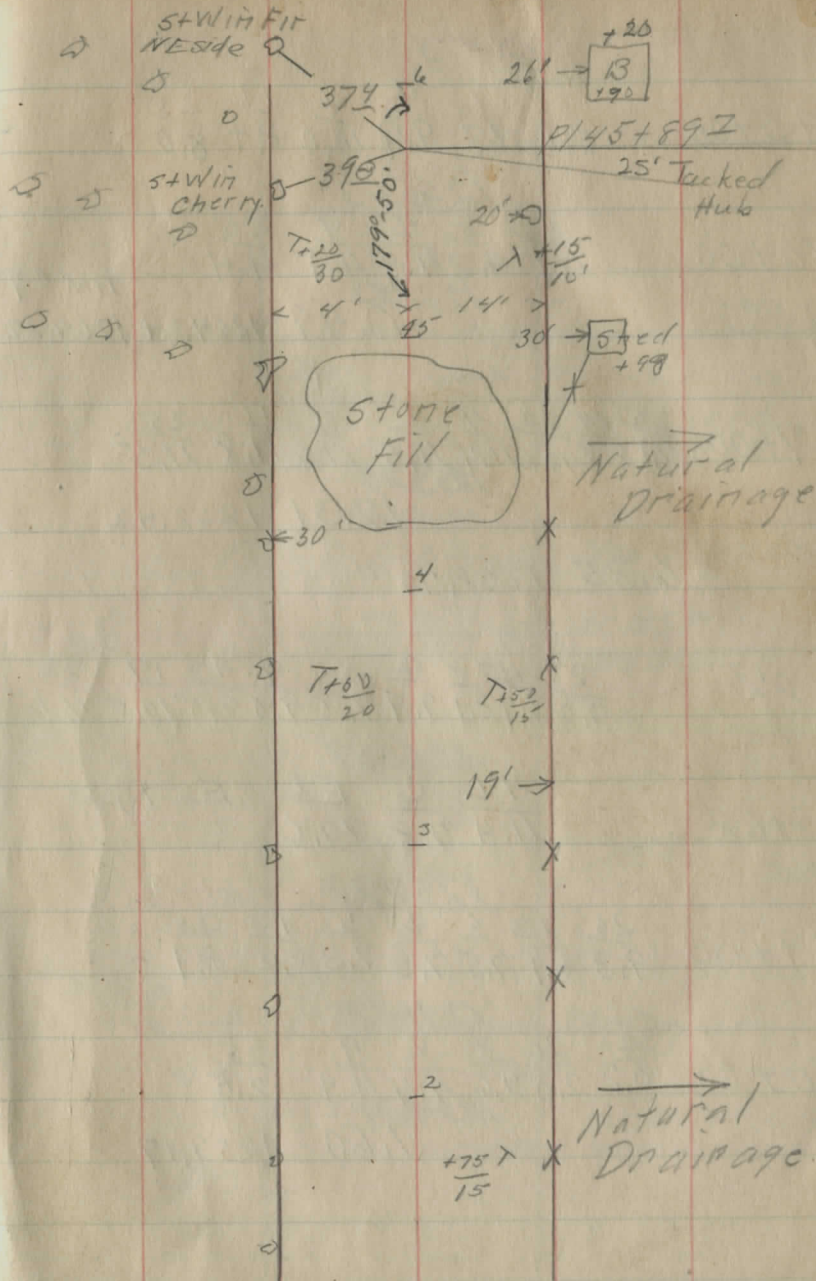 S+W in Fir
NE side
+20
B
+90
26'
6
374
PI 45+89
25' Tacked
Hub
S+W in
Cherry
390
20'
T+20
30
+15
10'
4' 14'
45
30'
Shed
+98
Stone
Fill
Natural
Drainage
30'
4
T+60
20
T+50
15'
19'
3
2
+75
15
Natural
Drainage